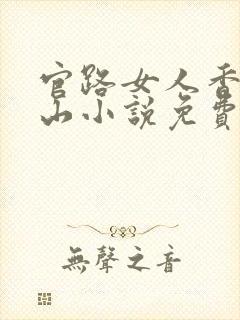 官路女人香
山小說免費
無聲之音